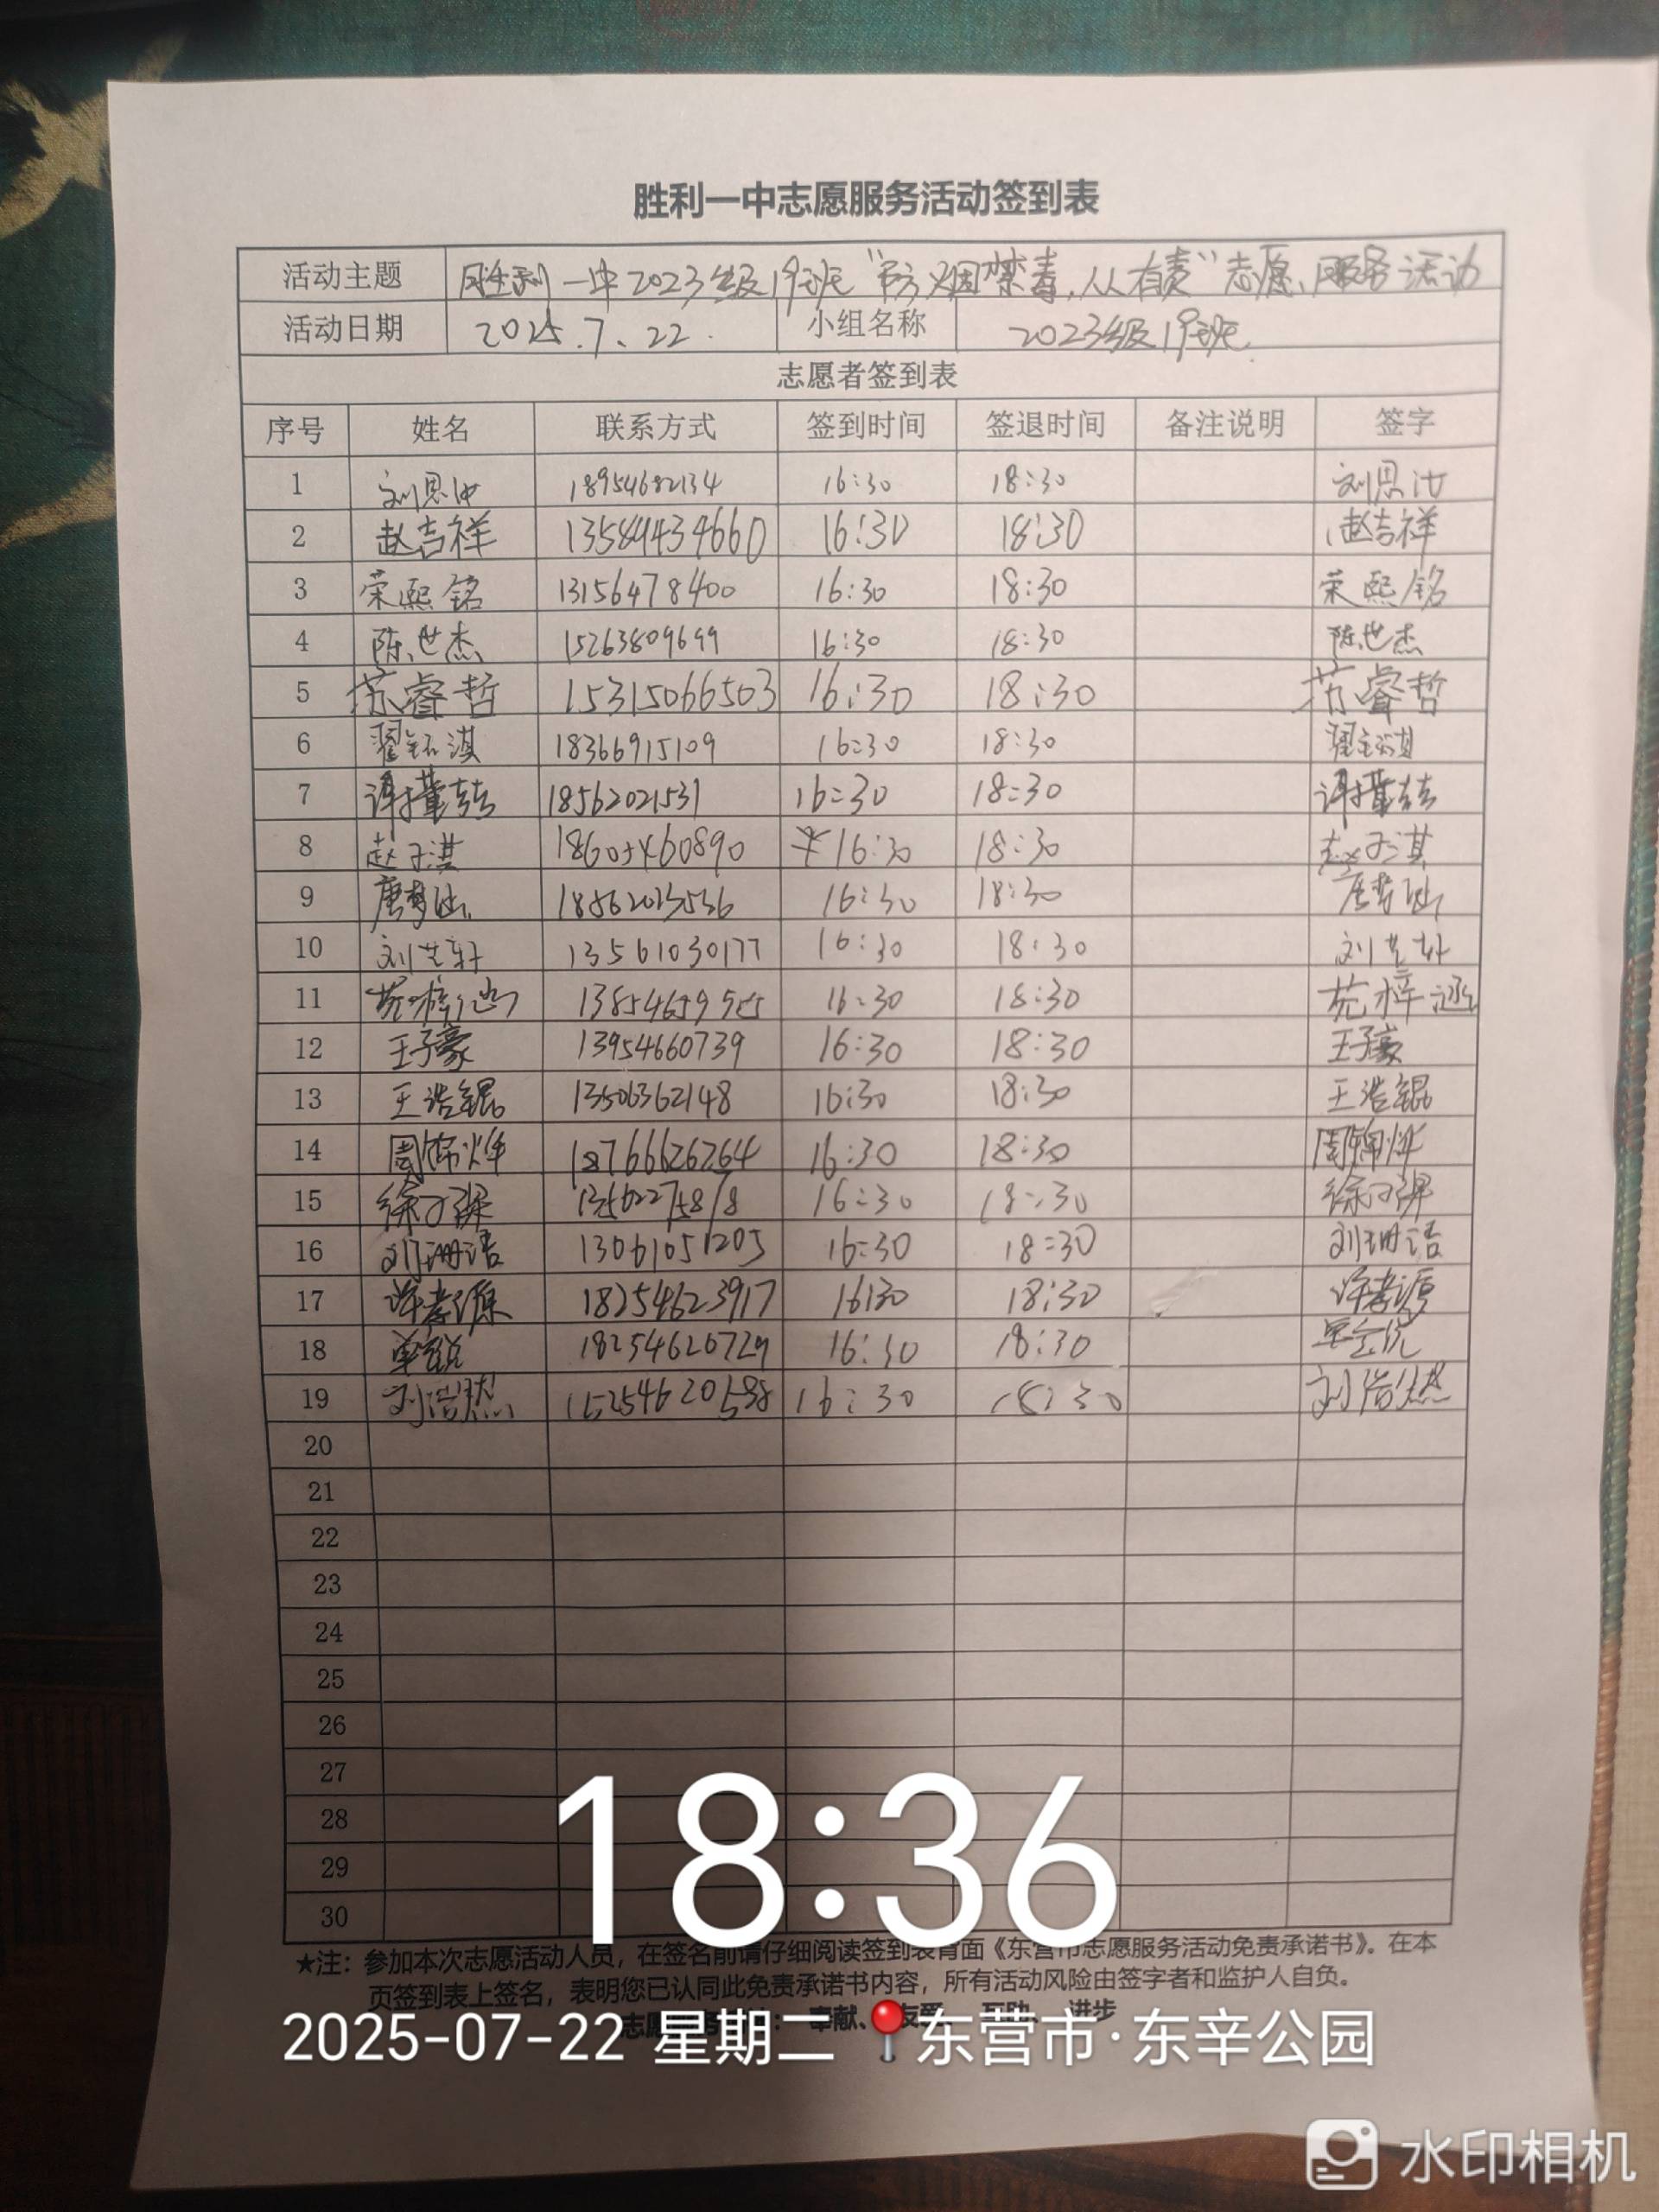 胜利一中志愿服务活动签到表
活动主题 胜利一中2023级19班"防烟禁毒,人人有责"志愿服务活动
活动日期 2025.7.22. 小组名称 2023级19班
志愿者签到表
序号 姓名 联系方式 签到时间 签退时间 备注说明 签字
1 刘思汝 18954682134 16:30 18:30 刘思汝
2 赵吉祥 16:30 18:30 赵吉祥
3 荣熙铭 13156478400 16:30 18:30 荣熙铭
4 陈世杰 15263809699 16:30 18:30 陈世杰
5 苏睿哲 15315066503 16:30 18:30 苏睿哲
6 翟铭淇 18366915109 16:30 18:30 翟铭淇
7 谭董喆 18562021531 16:30 18:30 谭董喆
8 赵子淇 18605460890 16:30 18:30 赵子淇
9 唐梦灿 16:30 18:30
10 刘芷轩 13561030177 16:30 18:30 刘芷轩
11 苑梓涵 16:30 18:30 苑梓涵
12 王子豪 13954660739 16:30 18:30 王子豪
13 王浩锟 13506362148 16:30 18:30 王浩锟
14 周锦烨 18766626264 16:30 18:30 周锦烨
15 16:30 18:30
16 刘珊语 13061051205 16:30 18:30 刘珊语
17 许孝源 18254623917 16:30 18:30 许孝源
18 18254620729 16:30 18:30
19 刘浩然 16:30 18:30 刘浩然
20
21
22
23
24
25
26
27
28
29
30
18:36
★注:参加本次志愿活动人员,在签名前请仔细阅读签到表背面《东营市志愿服务活动免责承诺书》。在本
页签到表上签名,表明您已认同此免责承诺书内容,所有活动风险由签字者和监护人自负。
奉献、友爱、互助、进步
2025-07-22 星期二 东营市·东辛公园
水印相机